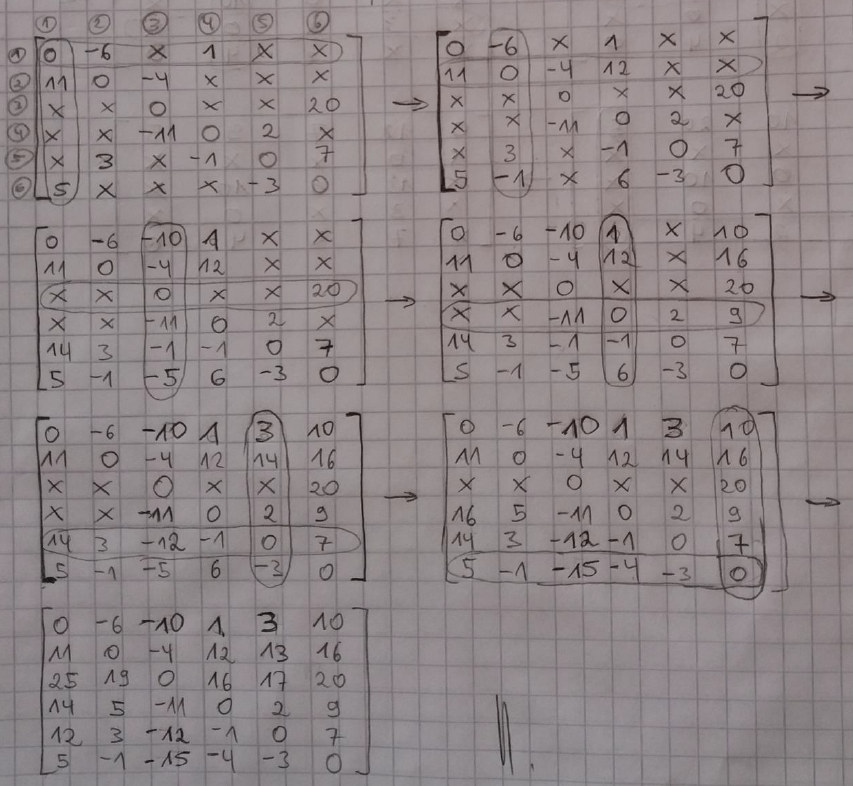 ① ② ③ ④ ⑤ ⑥
① 0 -6 x 1 x x
② 11 0 -4 x x x
③ x x 0 x x 20
④ x x -11 0 2 x
⑤ x 3 x -1 0 7
⑥ 5 x x x -3 0
→
0 -6 x 1 x x
11 0 -4 12 x x
x x 0 x x 20
x x -11 0 2 x
x 3 x -1 0 7
5 -1 x 6 -3 0
→
0 -6 -10 1 x x
11 0 -4 12 x x
x x 0 x x 20
x x -11 0 2 x
14 3 -1 -1 0 7
5 -1 -5 6 -3 0
→
0 -6 -10 1 x 10
11 0 -4 12 x 16
x x 0 x x 20
x x -11 0 2 9
14 3 -1 -1 0 7
5 -1 -5 6 -3 0
→
0 -6 -10 1 3 10
11 0 -4 12 14 16
x x 0 x x 20
x x -11 0 2 9
14 3 -12 -1 0 7
5 -1 -5 6 -3 0
→
0 -6 -10 1 3 10
11 0 -4 12 14 16
x x 0 x x 20
16 5 -11 0 2 9
14 3 -12 -1 0 7
5 -1 -15 -4 -3 0
→
0 -6 -10 1 3 10
11 0 -4 12 13 16
25 19 0 16 17 20
14 5 -11 0 2 9
12 3 -12 -1 0 7
5 -1 -15 -4 -3 0